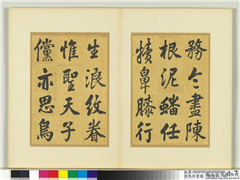 務令盡陳
根泥蟠任
犢鼻膝行
生浪紋眷
惟聖天子
儻亦思鳥